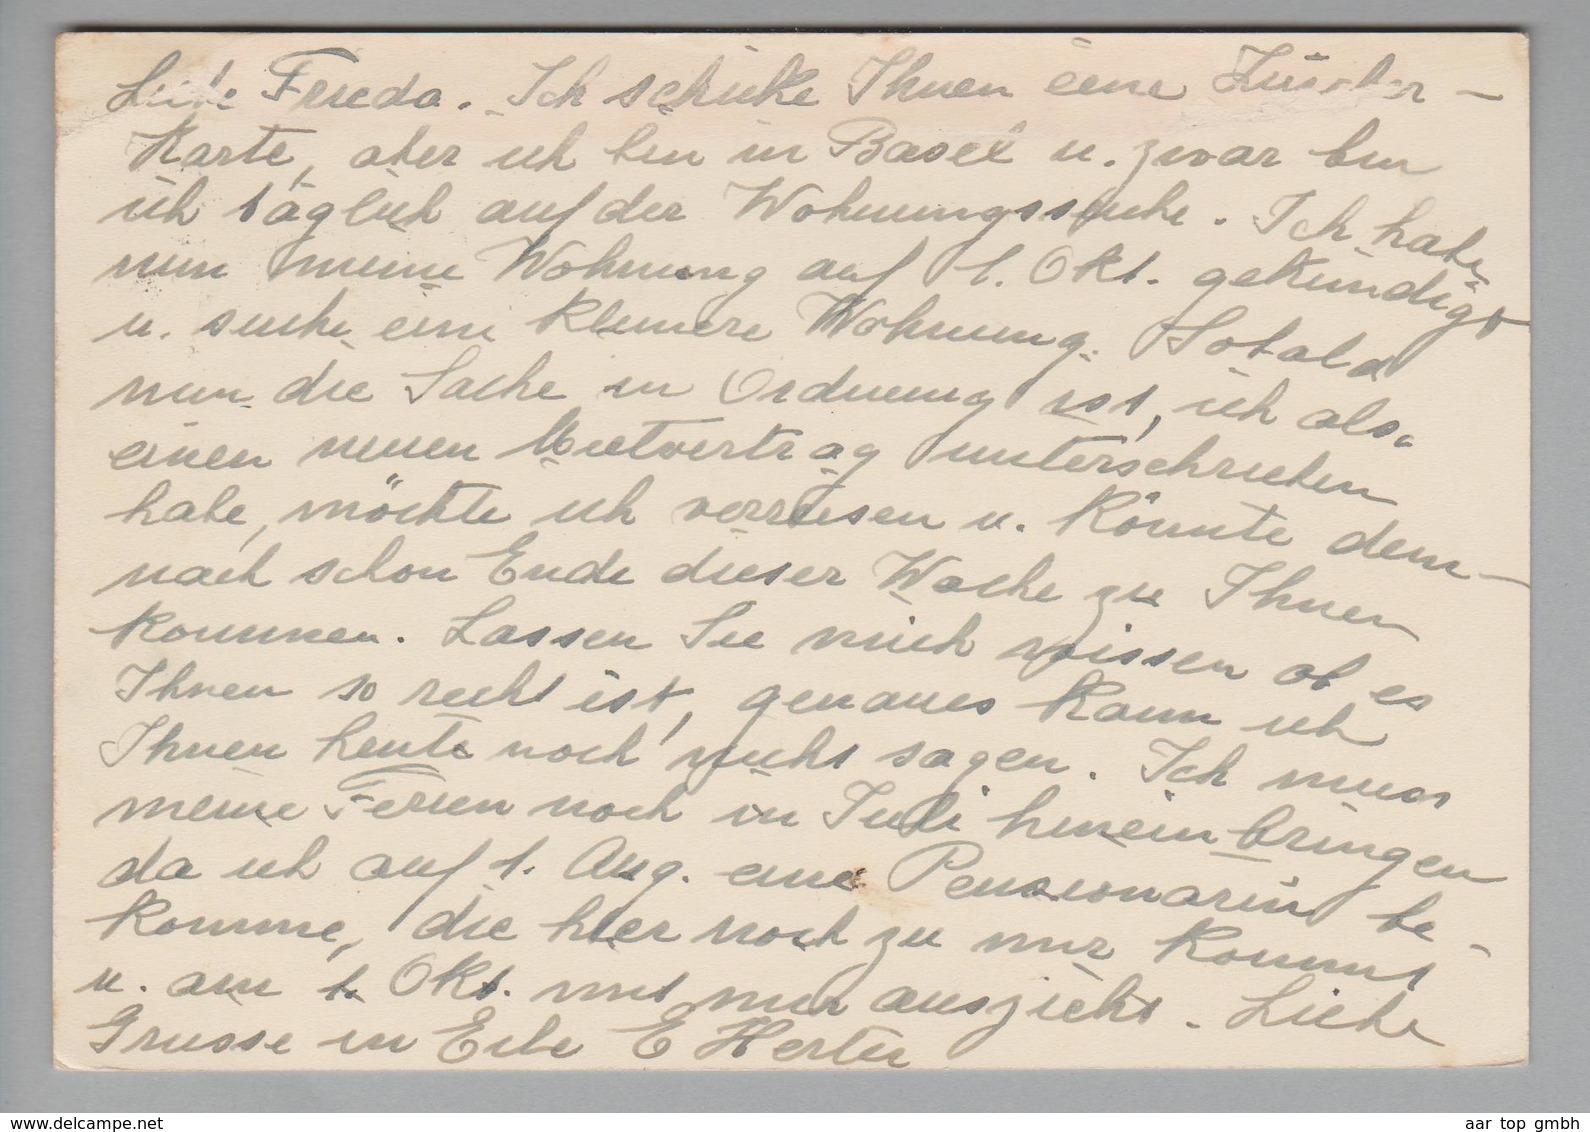 Liebe Frieda. Ich schicke Ihnen eine Zürcher-
Karte, aber ich bin in Basel u. zwar bin
ich täglich auf der Wohnungssuche. Ich habe
nun meine Wohnung auf 1. Okt. gekündigt
u. suche eine kleinere Wohnung. Sobald
nun die Sache in Ordnung ist, ich also
einen neuen Mietvertrag unterschrieben
habe, möchte ich verreisen u. könnte dem-
nach schon Ende dieser Woche zu Ihnen
kommen. Lassen Sie mich wissen ob es
Ihnen so recht ist, genaues kann ich
Ihnen heute noch nicht sagen. Ich muss
meine Ferien noch in Juli hinein bringen
da ich auf 1. Aug. eine Pensionärin be-
komme, die hier noch zu mir kommt
u. am 1. Okt. mit mir auszieht. Liebe
Grüsse in Eile E Herter
www.delcampe.net
aar top gmbh